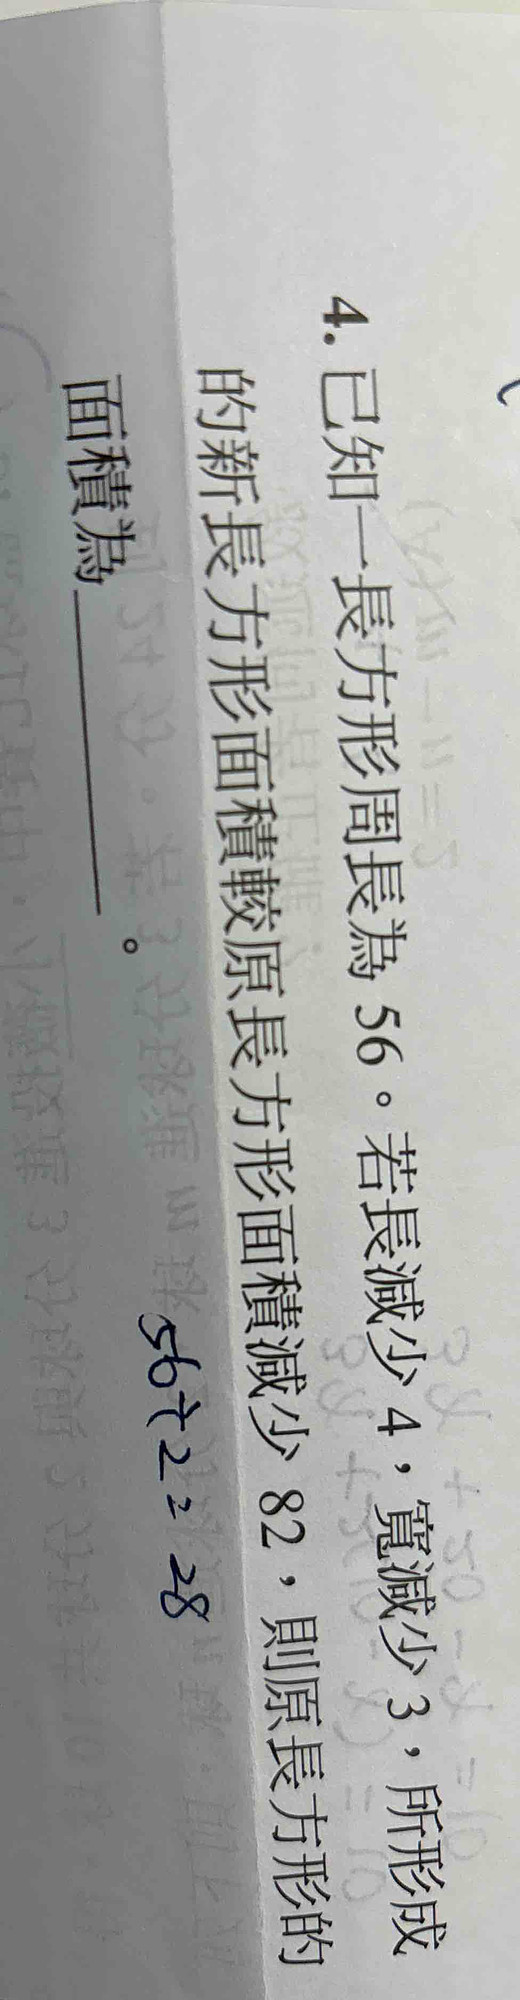 4. 已知一長方形周長為 56。若長減少 4，寬減少 3，所形成
的新長方形面積較原長方形面積減少 82，則原長方形的
面積為________。
56÷2=28